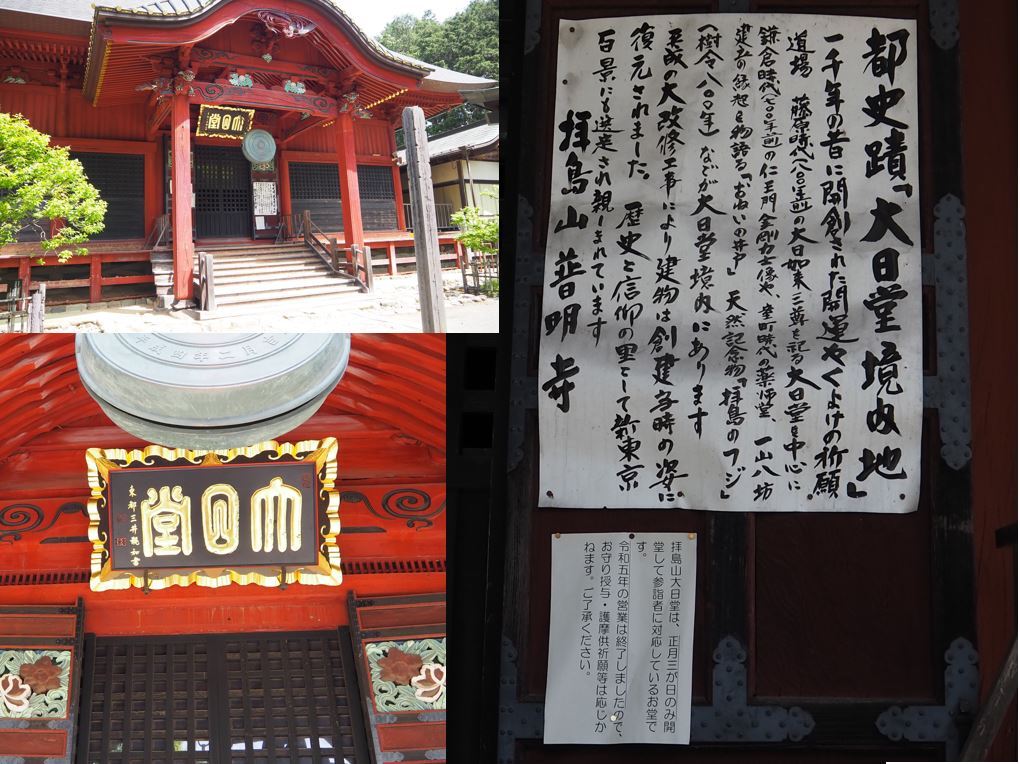 大日堂
平成四年二月
大日堂
東都三井親和書
都史蹟「大日堂境内地」
一千年の昔に開創された開運やくよけの祈願
道場　藤原時代(八〇〇年前)の大日如来三尊を祀る大日堂を中心に
鎌倉時代(七〇〇年前)の仁王門金剛力士像や、室町時代の薬師堂、一山八坊
建立の縁起を物語る「おねいの井戸」天然記念物「拝島のフジ」
(樹令八〇〇年)などが大日堂境内にあります
平成の大改修工事により建物は創建当時の姿に
復元されました。歴史と信仰の里として新東京
百景にも選定され親しまれています
拝島山　普明寺
拝島山大日堂は、正月三が日のみ開
堂して参詣者に対応しているお堂で
す。
令和五年の営業は終了しましたので、
お守り授与・護摩供祈願等は応じか
ねます。ご了承ください。